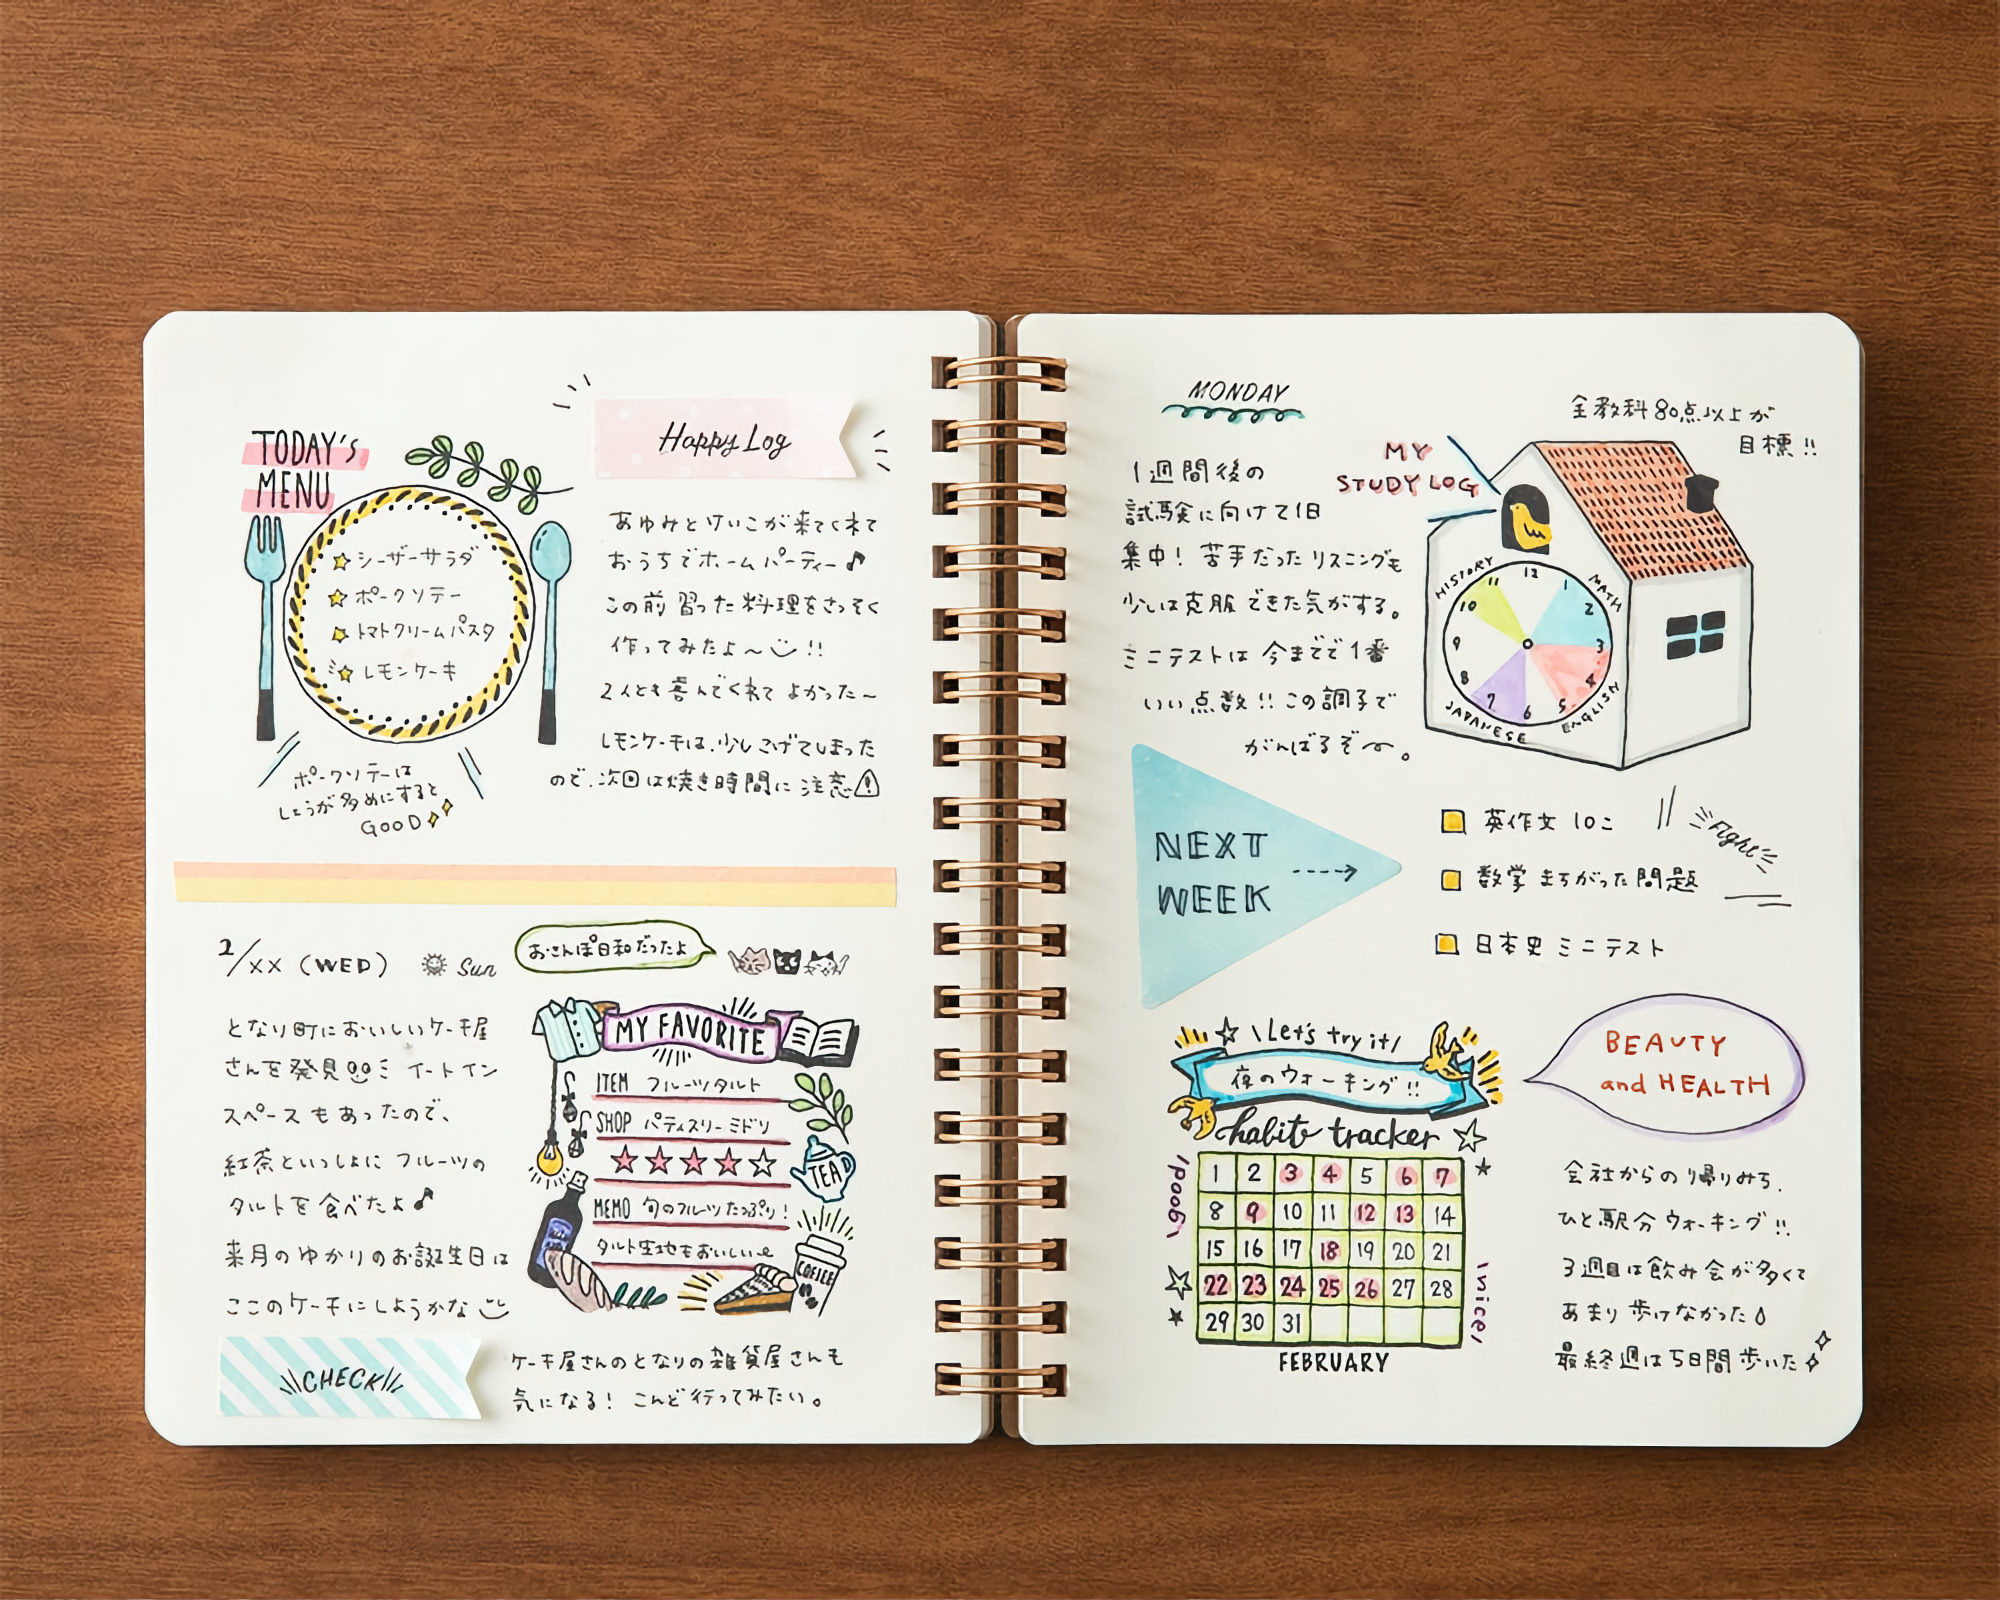 TODAY's
MENU
シーザーサラダ
ポークソテー
トマトクリームパスタ
レモンケーキ
ポークソテーは
しょうが多めにすると
GOOD
Happy Log
あゆみとけいこが来てくれて
おうちでホームパーティー♪
この前習った料理をさっそく
作ってみたよ〜!!
2人とも喜んでくれてよかった〜
レモンケーキは、少しこげてしまった
ので、次回は焼き時間に注意⚠
2/XX (WED)
Sun
おさんぽ日和だったよ
となり町においしいケーキ屋
さんを発見 イートイン
スペースもあったので、
紅茶といっしょにフルーツの
タルトを食べたよ♪
来月のゆかりのお誕生日は
ここのケーキにしようかな
MY FAVORITE
ITEM フルーツタルト
SHOP パティスリーミドリ
★★★★☆
MEMO 旬のフルーツたっぷり!
タルト生地もおいしい
TEA
COFFEE
CHECK
ケーキ屋さんのとなりの雑貨屋さんも
気になる! こんど行ってみたい。
MONDAY
1週間後の
試験に向けて1日
集中! 苦手だったリスニングも
少しは克服できた気がする。
ミニテストは今までで1番
いい点数!!この調子で
がんばるぞ〜。
MY
STUDY LOG
全教科80点以上が
目標!!
HISTORY
MATH
ENGLISH
JAPANESE
12
1
2
3
4
5
6
7
8
9
10
11
NEXT
WEEK
英作文 10こ
数学 まちがった問題
日本史 ミニテスト
Fight
\Let's try it/
夜のウォーキング!!
habit tracker
\good/
1 2 3 4 5 6 7
8 9 10 11 12 13 14
15 16 17 18 19 20 21
22 23 24 25 26 27 28
29 30 31
\nice/
FEBRUARY
BEAUTY
and HEALTH
会社からの帰りみち、
ひと駅分ウォーキング!!
3週目は飲み会が多くて
あまり歩けなかった
最終週は5日間歩いた